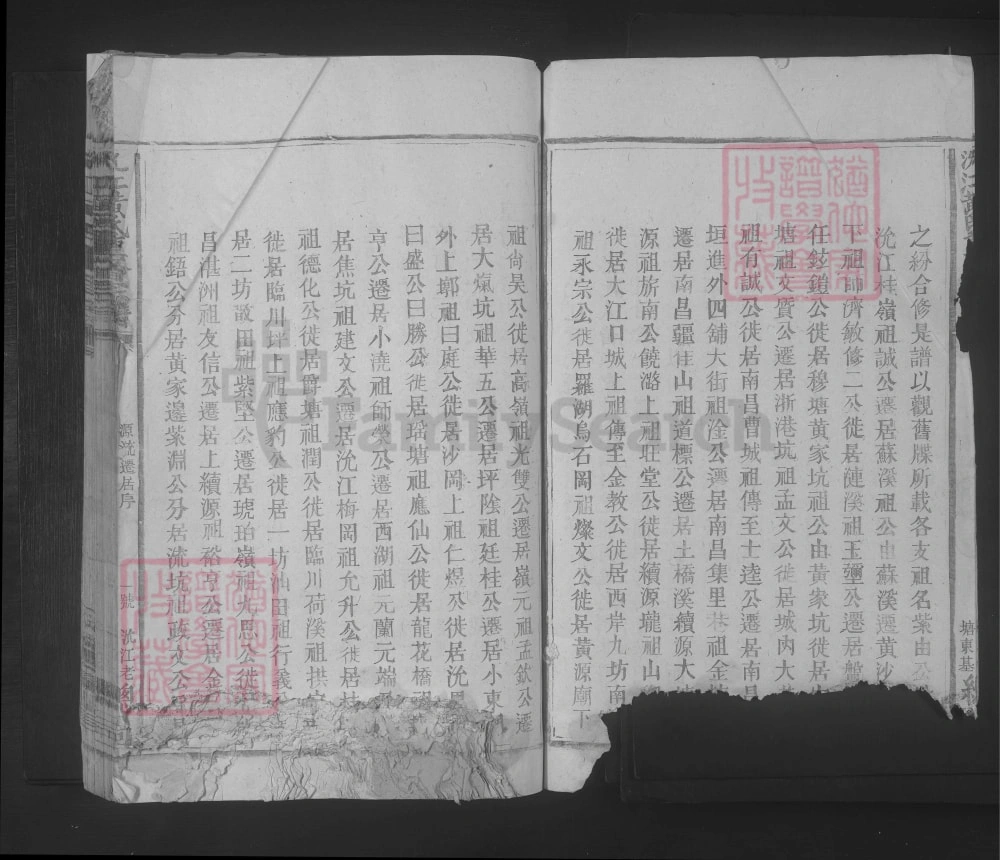 之紛合修是譜以觀舊牒所載各支祖名紫由公
沇江桂嶺祖誠公遷居蘇溪祖公由蘇溪遷黃沙
下祖師濟敏修二公徙居漣溪祖玉彌公遷居盤
任鉉鎧公徙居穆塘黃家坑祖公由黃家坑徙居
塘祖文質公遷居浙港坑祖孟文公徙居城內大
祖有誠公徙居南昌曹城祖傳至士逵公遷居南昌
垣進外四舖大街祖淦公遷居南昌集里巷祖金
遷居南昌疆佳山祖道標公遷居土橋溪續源大
源祖旂南公饒潞上祖旺堂公徙居續源壠祖山
徙居大江口城上祖傳至金教公徙居西岸九坊南
祖永宗公徙居羅湖烏石岡祖燦文公徙居黃源廟下
祖尙昊公徙居高嶺祖光雙公遷居嶺元祖孟欽公遷
居大氣坑祖華五公遷居坪陰祖廷桂公遷居小東
外上郭祖曰庭公徙居沙岡上祖仁煜公徙居沇
曰盛公曰勝公徙居瑤塘祖應仙公徙居龍花橋
亨公遷居小澆祖師榮公遷居西湖祖元蘭元端
居焦坑祖建文公遷居沇江梅岡祖允升公徙居
祖德化公徙居爵塘祖潤公徙居臨川荷溪祖拱
徙居臨川坪上祖應豹公徙居一坊油田祖行義
居二坊敵田祖紫堅公遷居琥珀嶺祖九思公徙
昌湛洲祖友信公遷居上續源祖裕亨公遷居金
祖鋙公分居黃家邊紫淵公分居流坑祖政文公
源沇遷居序
一號
沇江老
塘東基
FamilySearch